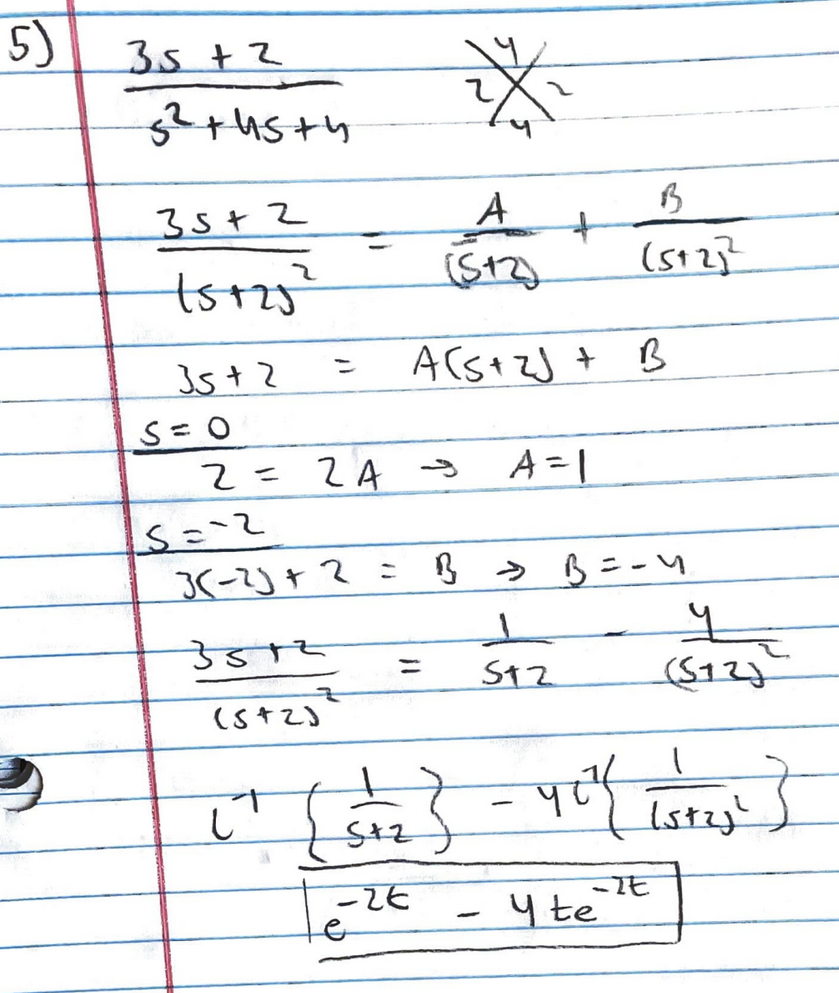 5) (3s + 2)/(s² + 4s + 4)   4 2 2 4
(3s + 2)/(s+2)² = A/(s+2) + B/(s+2)²
3s + 2 = A(s+2) + B
s = 0
2 = 2A → A = 1
s = -2
3(-2) + 2 = B → B = -4
(3s + 2)/(s+2)² = 1/(s+2) - 4/(s+2)²
L⁻¹ {1/(s+2)} - 4L⁻¹ {1/(s+2)²}
e^(-2t) - 4te^(-2t)